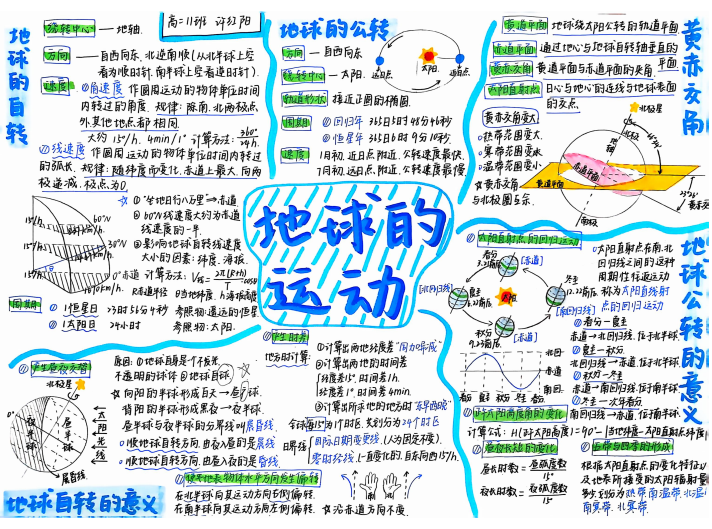 地球的自转
高二11班 许红阳
绕转中心 — 地轴.
方向 — 自西向东,北逆南顺(从北半球上空
看为顺时针,南半球上空看逆时针).
速度
①角速度 作圆周运动的物体单位时间
内转过的角度. 规律:除南、北两极点
外其他地点都相同.
大约15°/h. 4min/1° 计算方法: 360°/24h.
②线速度
作圆周运动的物体单位时间内转过
的弧长. 规律:随纬度而变化,赤道上最大,向两
极递减,极点为0
①"坐地日行八万里"→赤道
②60°N线速度大约为赤道
线速度的一半.
③影响地球自转线速度
大小的因素:纬度、海拔.
60°N
30°N
0°赤道
15°/h
15°/h
15°/h
周期
①1恒星日 23时56分4秒 参照物:遥远的恒星
②1太阳日 24小时 参照物:太阳.
地球的公转
方向 — 自西向东
绕转中心 — 太阳.
轨道形状 接近正圆的椭圆.
周期
①回归年 365日5时48分46秒
②恒星年 365日6时9分10秒.
速度
1月初,近日点附近,公转速度最快.
7月初,远日点附近,公转速度最慢.
近日点
太阳
远日点
黄赤交角
黄道平面 地球绕太阳公转的轨道平面
赤道平面 通过地心与地球自转轴垂直的
平面
黄赤交角 黄道平面与赤道平面的夹角.
太阳直射点 日心与地心的连线与地球表面
的交点.
黄赤交角变大
热带范围变大.
寒带范围变大
温带范围变小
☆黄赤交角
与北极圈互余.
北极星
北极
地轴
赤道平面
黄道平面
南极
23°26'
黄赤交角
地球的运动
地球公转的意义
①太阳直射点的回归运动
太阳直射点在南、北
回归线之间的这种
周期性往返运动
称为太阳直射
点的回归运动
春分
3.21前后
[赤道]
夏至
[北回归线]
太阳
冬至
12.22前后
[南回归线]
秋分
9.23前后
[赤道]
①春分—夏至
赤道→北回归线,位于北半球
②夏至—秋分
北回归线→赤道,位于北半球.
③秋分—冬至
赤道→南回归线,位于南半球
④冬至—次年春分
南回归线→赤道,位于南半球.
北回
赤道
南回
春分 夏至 秋分 冬至 春分
②正午太阳高度角的变化
计算公式:H(正午太阳高度)=90°-|当地纬度-太阳直射点纬度|
③昼夜长短的变化
昼长时数= 昼弧度数/15°
夜长时数= 夜弧度数/15°
④五带与四季的形成
根据太阳直射点的变化特征以
及地表所接受的太阳辐射量
多少划分为热带、南温带、北温带
南寒带、北寒带.
①产生昼夜交替
原因:①地球自身是个不发光,
不透明的球体 ②地球自转
☆向阳的半球构成白天→昼半球.
背阳的半球构成黑夜→夜半球.
昼半球与夜半球的分界线叫晨昏线.
①顺地球自转方向,由夜入昼的是晨线
②顺地球自转方向,由昼入夜的是昏线.
北极星
夜半球
昼半球
太阳光线
晨昏线
②产生时差
地方时计算:
①计算出两地经度差"同减异加"
②计算出两地的时间差
经度差15°,时间差1h.
经度差1°,时间差4min.
③计算出所求地的地方时"东早西晚"
全球每15°为1个时区,共划分为24个时区
日界线
国际日期变更线.(人为固定不变).
零时经线.(一直变化的,自东向西15°/h).
③使地表物体水平方向发生偏转
在北半球向其运动方向右侧偏转.
在南半球向其运动方向左侧偏转.
☆沿赤道方向不变.
地球自转的意义